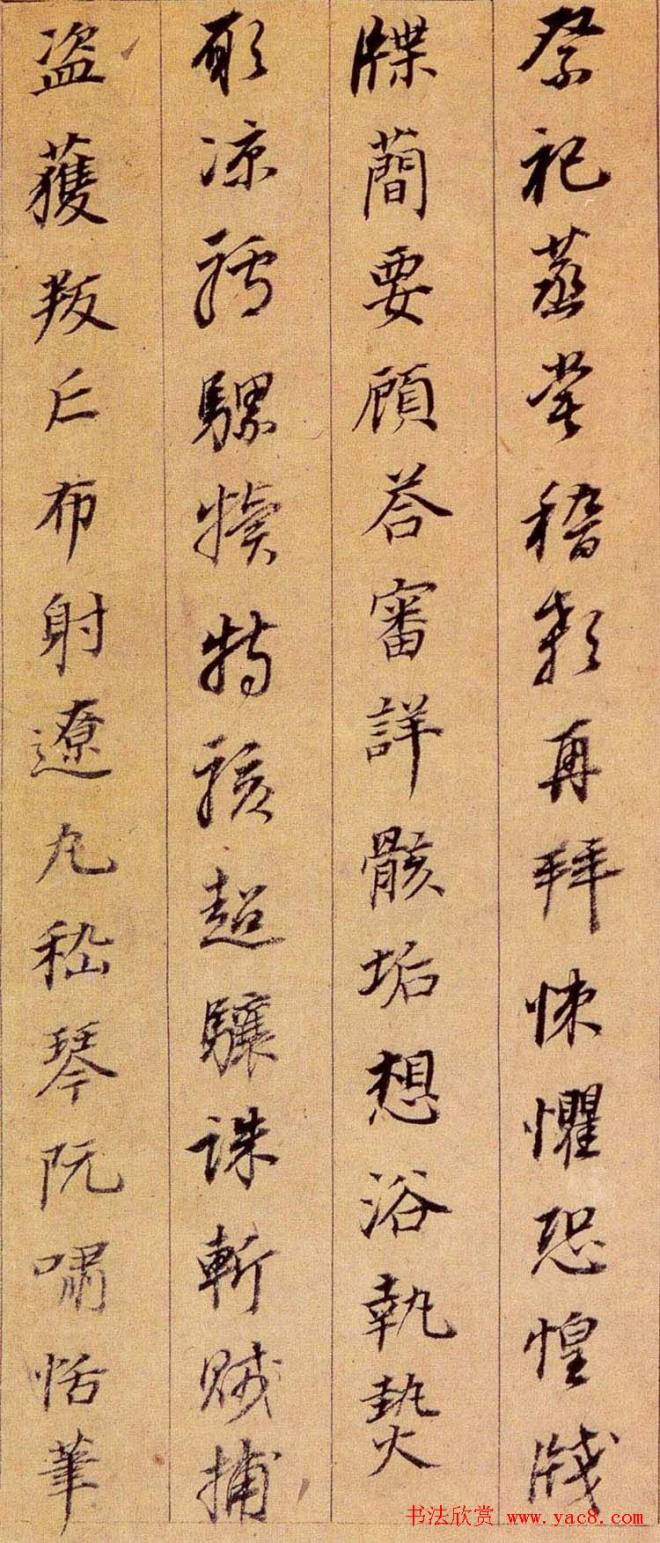 祭祀蒸尝稽颡再拜悚懼恐惶牋
牒蕳要顧荅審詳骸垢想浴執𤍠
願凉驢騾犢特駭超驤誅斬賊捕
盗獲叛亡布射遼丸嵇琴阮嘯恬筆
书法欣赏 www.yac8.com